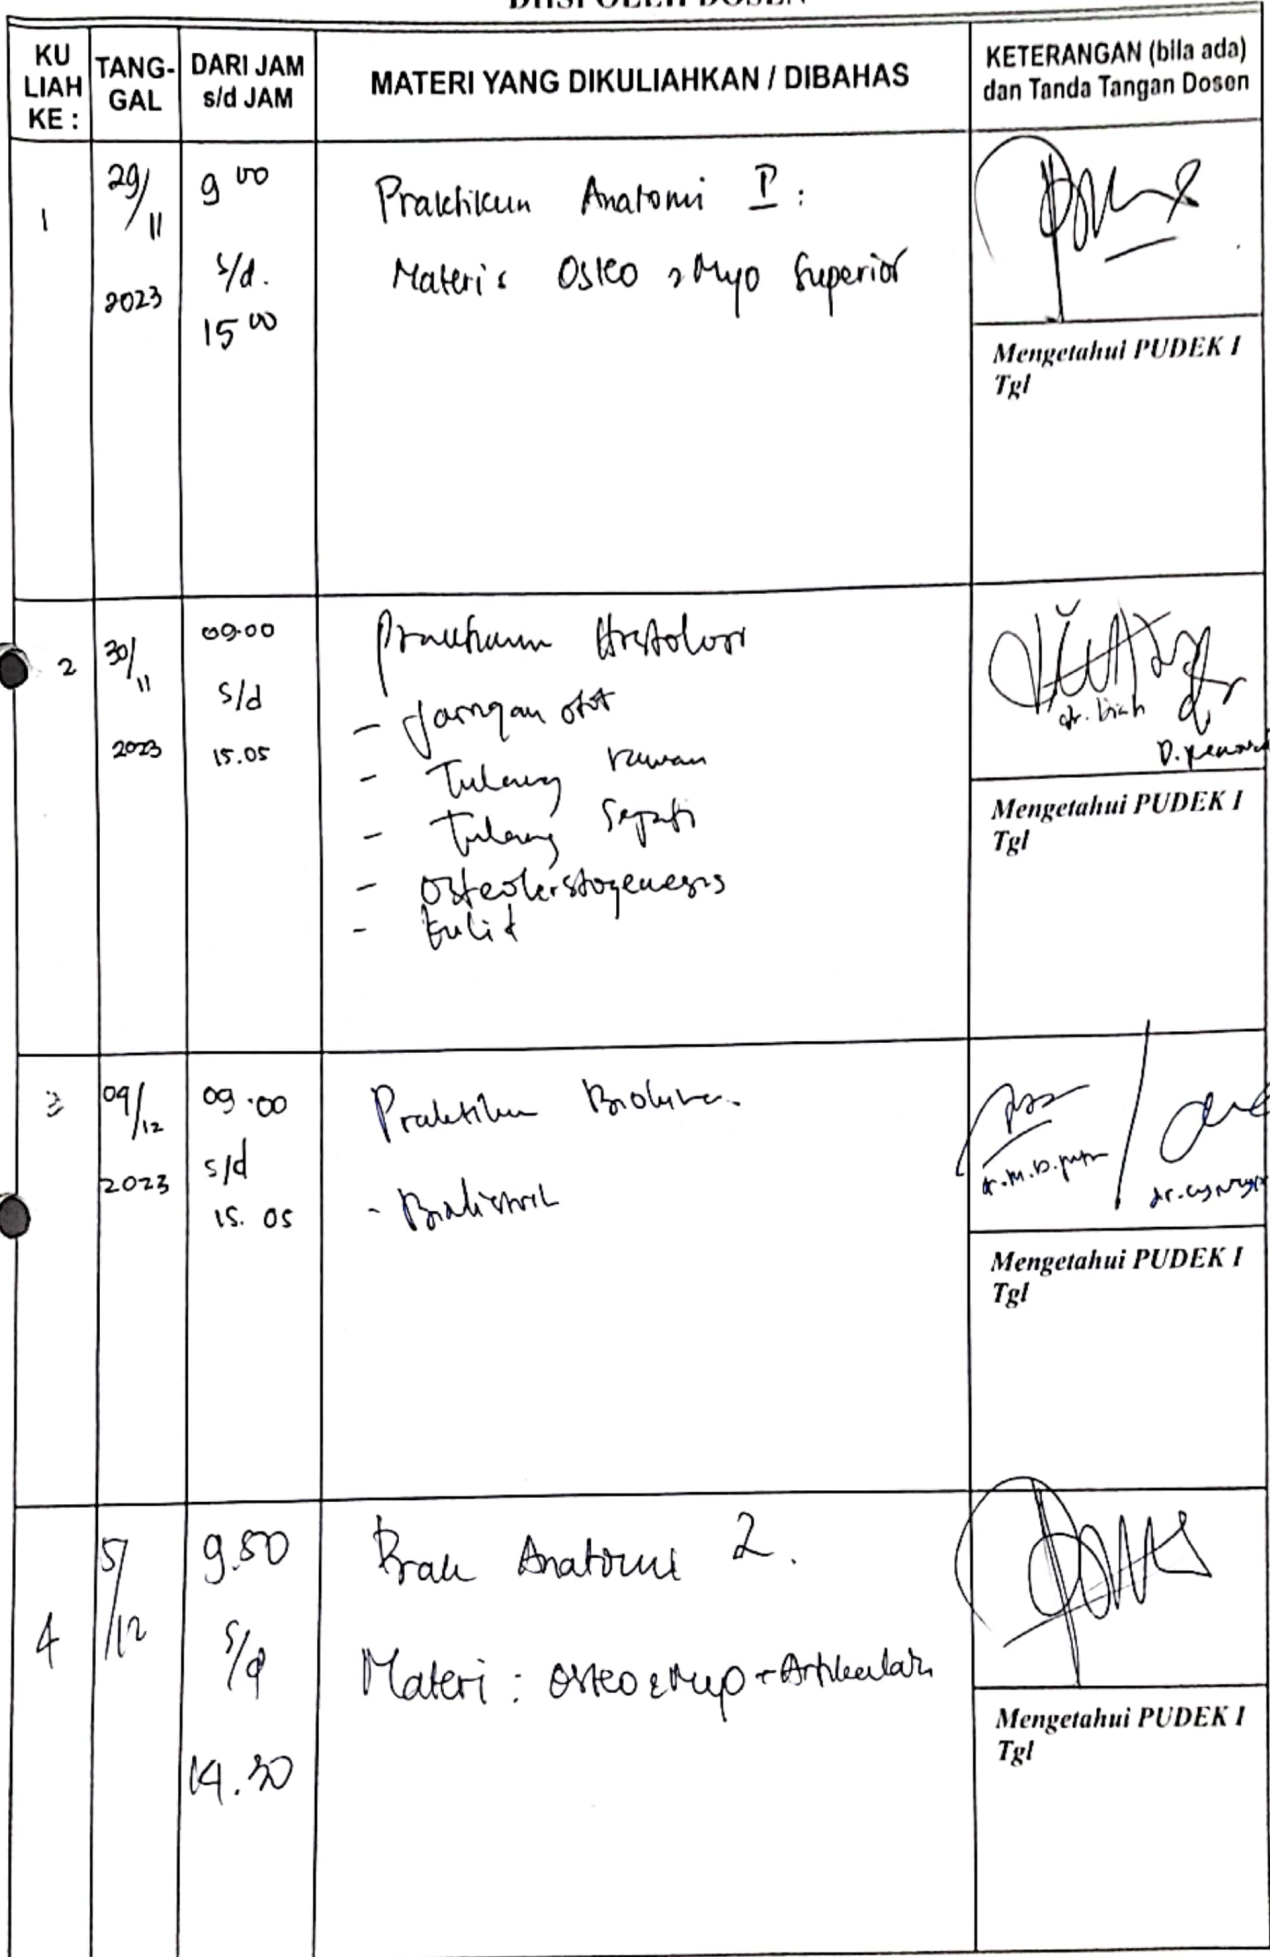 DIISI OLEH DOSEN
KU
LIAH
KE :
TANG-
GAL
DARI JAM
s/d JAM
MATERI YANG DIKULIAHKAN / DIBAHAS
KETERANGAN (bila ada)
dan Tanda Tangan Dosen
1
29/11
2023
9 00
s/d.
15 00
Praktikum Anatomi I :
Materi : Osteo & Myo Superior
Mengetahui PUDEK I
Tgl
2
30/11
2023
09.00
s/d
15.05
Praktikum Histologi
- Jaringan otot
- Tulang rawan
- Tulang Sejati
- Osteohistogenesis
- Kulit
dr. Diah
Mengetahui PUDEK I
Tgl
3
04/12
2023
09.00
s/d
15.05
Praktikum
dr. M. D.
Mengetahui PUDEK I
Tgl
4
5/12
9.50
s/d
14.30
Prak Anatomi 2.
Materi : Osteo & Myo + Artikulasi
Mengetahui PUDEK I
Tgl